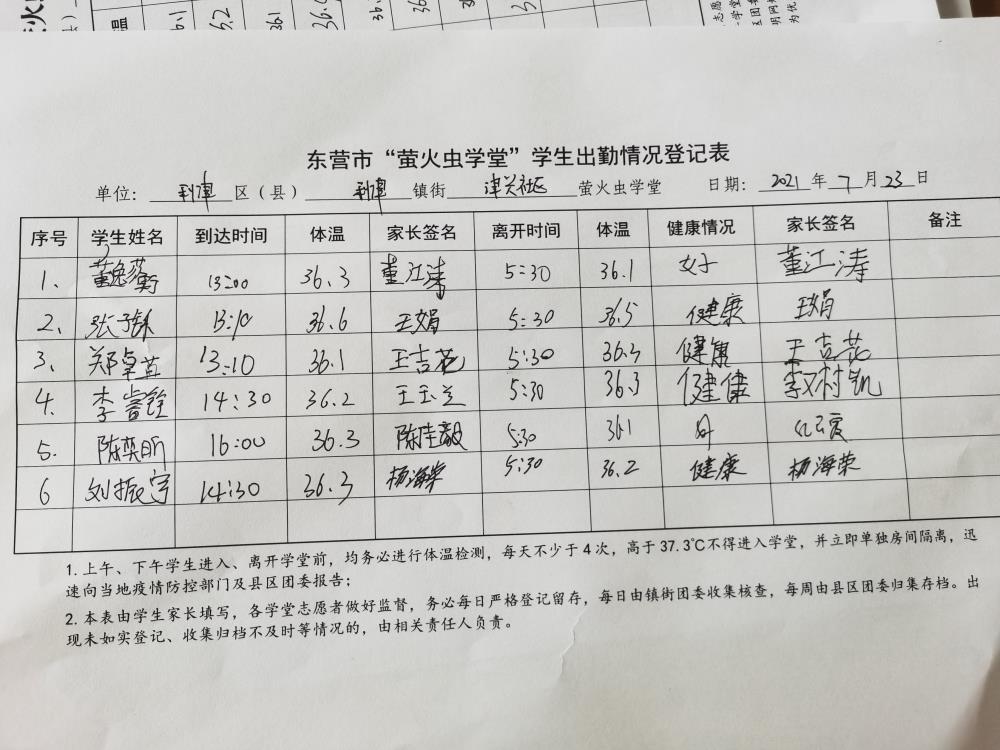 东营市“萤火虫学堂”学生出勤情况登记表
单位: 利津 区(县) 利津 镇街 津关社区 萤火虫学堂 日期: 2021 年 7 月 23 日
序号 学生姓名 到达时间 体温 家长签名 离开时间 体温 健康情况 家长签名 备注
1、 13:00 36.3 董江涛 5:30 36.1 好 董江涛
2、 13:10 36.6 王娟 5:30 36.5 健康 王娟
3、 郑卓 13:10 36.1 王吉花 5:30 36.3 健康 王吉花
4. 李睿铨 14:30 36.2 王玉兰 5:30 36.3 健健
5. 陈奕昕 16:00 36.3 陈佳毅 5:30 36.1
6 刘振宇 14:30 36.3 杨海荣 5:30 36.2 健康 杨海荣
1.上午、下午学生进入、离开学堂前,均务必进行体温检测,每天不少于4次,高于37.3℃不得进入学堂,并立即单独房间隔离,迅
速向当地疫情防控部门及县区团委报告;
2.本表由学生家长填写,各学堂志愿者做好监督,务必每日严格登记留存,每日由镇街团委收集核查,每周由县区团委归集存档。出
现未如实登记、收集归档不及时等情况的,由相关责任人负责。